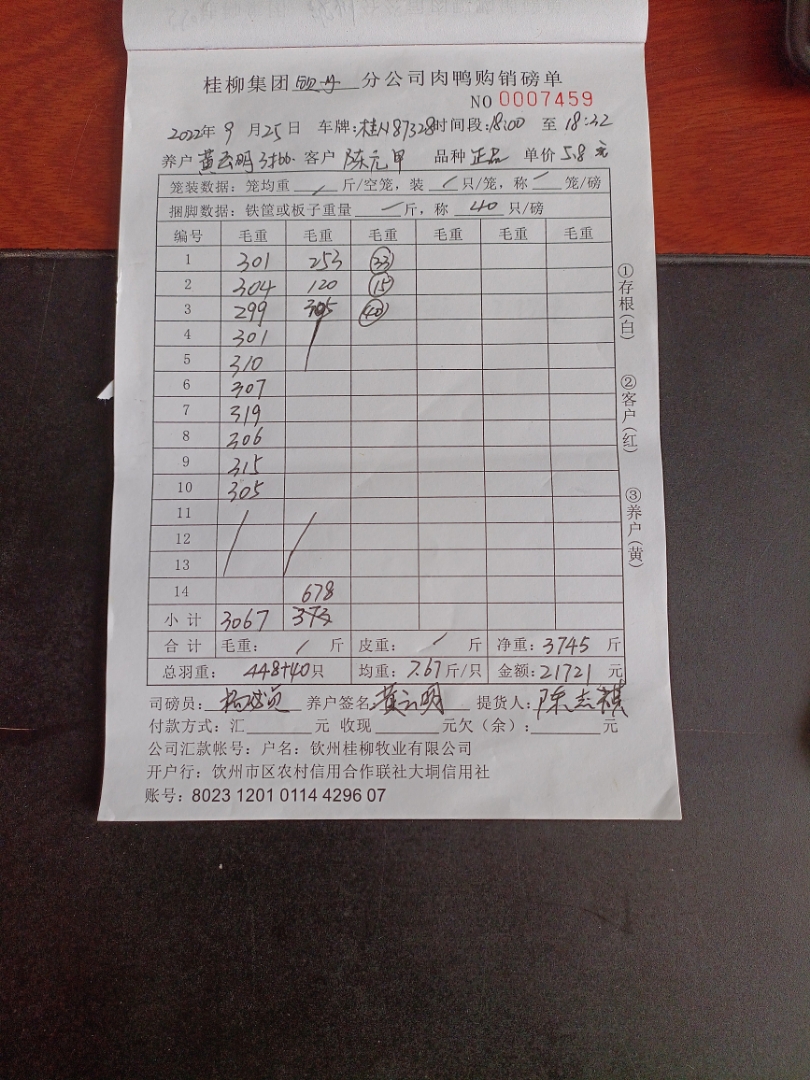 桂柳集团 分公司肉鸭购销磅单
NO 0007459
2022年 9 月 25 日 车牌:桂N87328 时间段:18:00 至 18:32
养户 黄云明 客户 陈元甲 品种 正品 单价 5.8 元
笼装数据:笼均重 / 斤/空笼,装 / 只/笼,称 一 笼/磅
捆脚数据:铁筐或板子重量 一 斤,称 40 只/磅
编号 毛重 毛重 毛重 毛重 毛重 毛重
1 301 253 33
2 304 120 15
3 299 305 40
4 301
5 310
6 307
7 319
8 306
9 315
10 305
11
12
13
14 678
小计 3067 373
合计 毛重: / 斤 皮重: / 斤 净重: 3745 斤
总羽重: 448+40 只 均重: 7.67 斤/只 金额: 21721 元
司磅员: 养户签名: 黄云明 提货人: 陈志祺
付款方式:汇 元 收现 元欠(余): 元
公司汇款帐号:户名:钦州桂柳牧业有限公司
开户行:饮州市区农村信用合作联社大垌信用社
账号:8023 1201 0114 4296 07
①存根(白)
②客户(红)
③养户(黄)